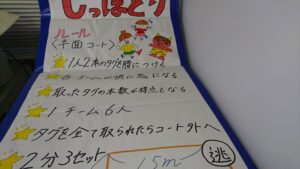 しっぽとり
ルール
〈平面コート〉
1人2本のタグを腰につける
取ったタグの本数が得点となる
1チーム6人
タグを全て取られたらコート外へ
2分3セット
15m
逃